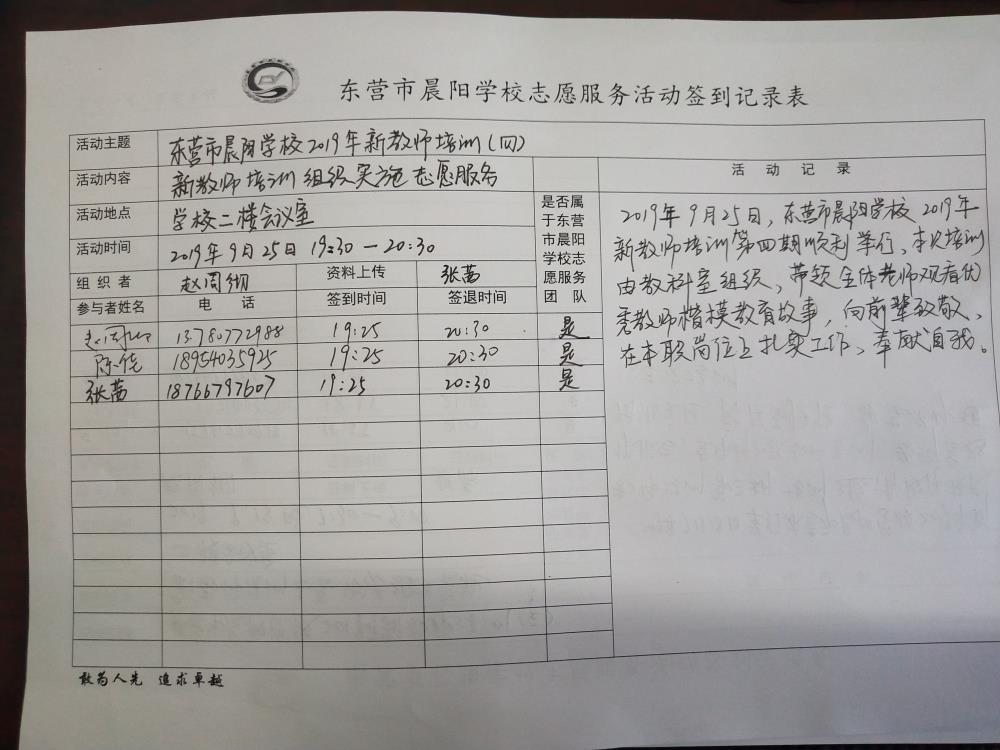 东营市晨阳学校志愿服务活动签到记录表
活动主题 东营市晨阳学校2019年新教师培训(四)
活动内容 新教师培训组织实施志愿服务
活动地点 学校二楼会议室
活动时间 2019年9月25日 19:30—20:30
组织者 赵周纲 资料上传 张茜
参与者姓名 电话 签到时间 签退时间
是否属
于东营
市晨阳
学校志
愿服务
团队
赵周纲 13780772988 19:25 20:30 是
陈佳 18954035925 19:25 20:30 是
张茜 18766797607 19:25 20:30 是
活动记录
2019年9月25日,东营市晨阳学校2019年
新教师培训第四期顺利举行、本次培训
由教科室组织、带领全体老师观看优
秀教师楷模教育故事,向前辈致敬、
在本职岗位上扎实工作、奉献自我。
敢为人先 追求卓越